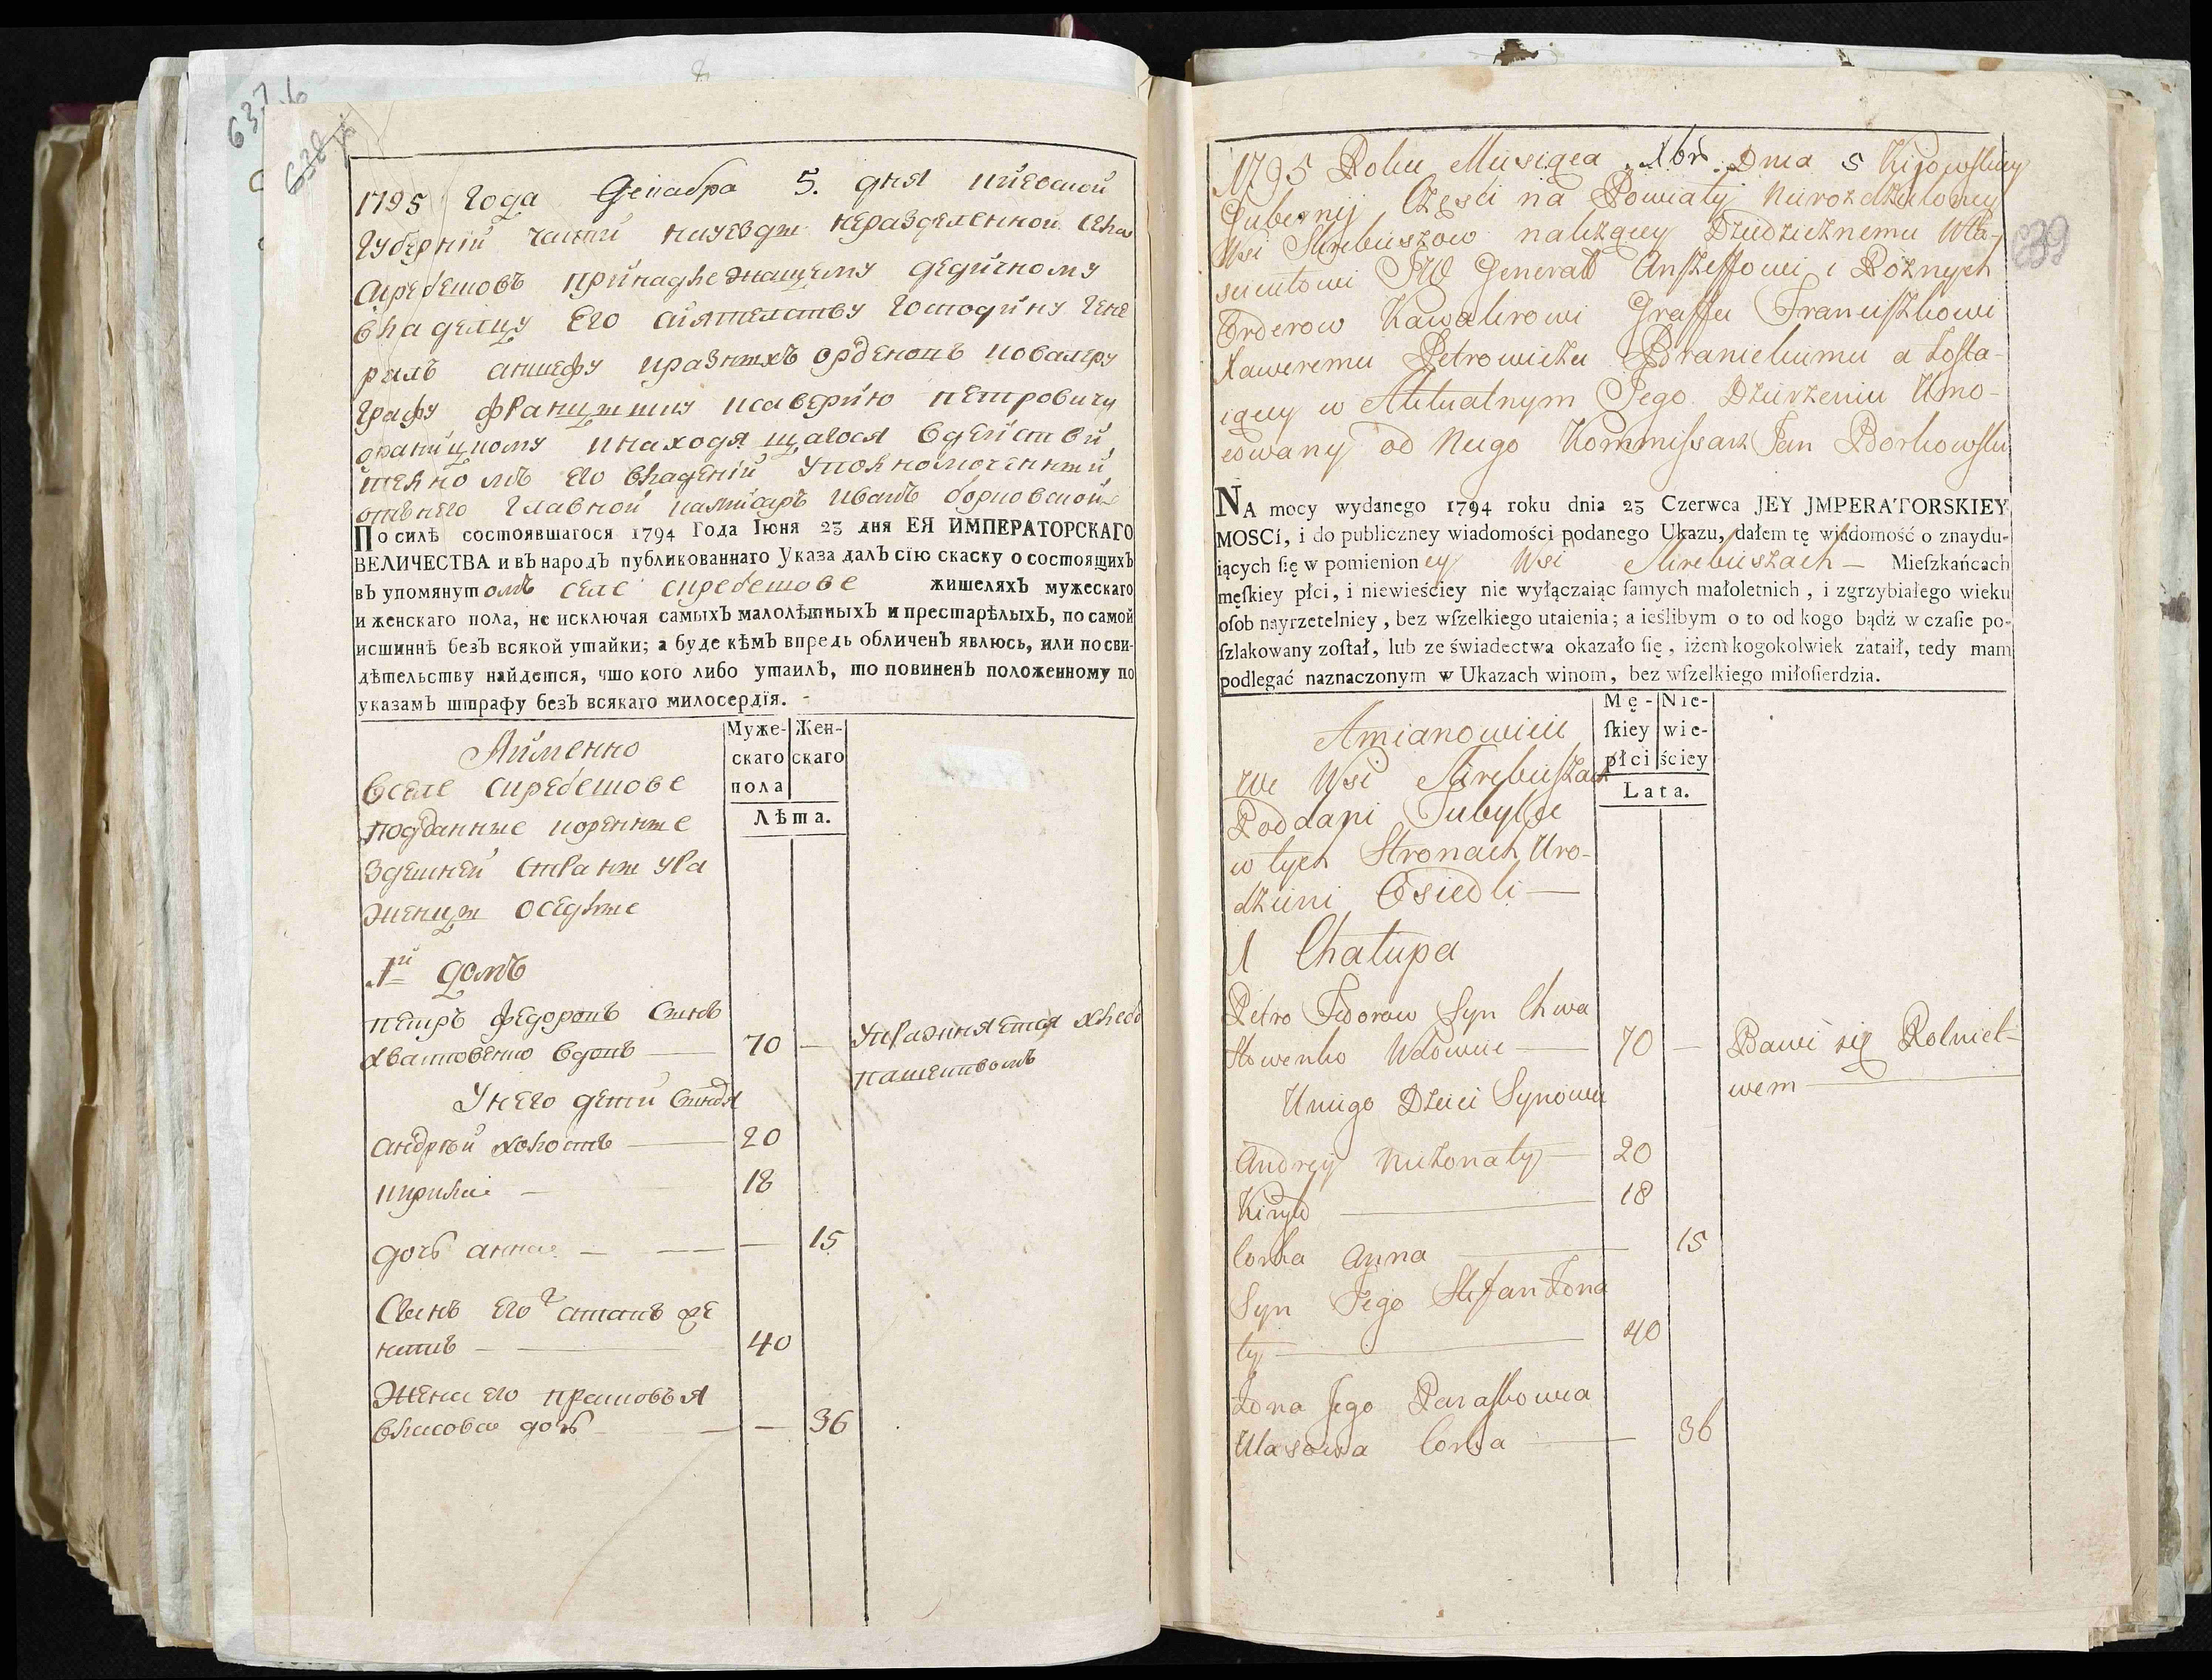 637
638
1795 года Декабра 5. дня Киевской
Губернии части науезды неразделенной села
Скребешовъ принадлежащему дедичному
владелцу Его Сиятелству Господину Гене
ралъ аншефу иразныхъ орденовъ кавалеру
Графу Францышку Ксаверию Петровичу
браницкому инаходящагося вдействи
телномъ его владении Уполномоченный
отънего Главной камисаръ Иванъ борковской
По силѣ состоявшагося 1794 Года Іюня 23 дня ЕЯ ИМПЕРАТОРСКАГО
ВЕЛИЧЕСТВА и въ народъ публикованнаго Указа далъ сію скаску о состоящихъ
въ упомянутомъ селе скребешове жителяхъ мужескаго
и женскаго пола, не исключая самыхъ малолѣтныхъ и престарѣлыхъ, по самой
истиннѣ безъ всякой утайки; а буде кѣмъ впредь обличенъ явлюсь, или по сви-
дѣтельству найдется, что кого либо утаилъ, то повиненъ положенному по
указамъ штрафу безъ всякаго милосердія.
Аименно
вселе скребешове
подданные коренные
здешней страны ура
женцы оседлые
Муже-скаго пола
Жен-скаго
Лѣта.
1й домъ
петръ федоровъ сынъ
хвастовенко вдовъ — 70 — Упражняется хлебо
пашествомъ
Унего дети сыновя
андрей холостъ — 20
кирила — 18
дочь анна — — 15
Сынъ его степанъ же
натъ — 40
Жена его прасковья
власова дочь — — 36
39
1795 Roku Miesiąca Xbra Dnia 5 Kijowskiey
Gubernij Części na Powiaty Nierozdzieloney
Wsi Skrebiszow należącey Dziedzicznemu Wła-
scicielowi JW Generałł Anszeffowi i Rożnych
Orderow Kawalerowi Graffu Franciszkowi
Xaweremu Petrowiczu Branickiemu a zosta-
iącey w Aktualnym Jego Dzierżeniu Umo-
cowany od Niego Kommissarz Jan Borkowski
NA mocy wydanego 1794 roku dnia 23 Czerwca JEY JMPERATORSKIEY
MOSCí, i do publiczney wiadomości podanego Ukazu, dałem tę wiadomość o znaydu-
iących ſię w pomienioney Wsi Skrebiszach — Mieſzkańcach
męſkiey płci, i niewieściey nie wyłączaiąc ſamych małoletnich, i zgrzybiałego wieku
oſob nayrzetelniey, bez wſzelkiego utaienia; a ieślibym o to od kogo bądź w czaſie po-
ſzlakowany zoſtał, lub ze świadectwa okazało ſię, iżem kogokolwiek zataił, tedy mam
podlegać naznaczonym w Ukazach winom, bez wſzelkiego miłoſierdzia.
Amianowicie
We Wsi Skrebiszach
Poddani Tubylce
w tych Stronach Uro-
dzieni Osiedli —
Mę-ſkiey płci
Nie-wie-ściey
Lata.
1 Chałupa
Petro Fedorow Syn Chwa
stowenko Wdowiec — 70 — Bawi się Rolnict-
wem —
U niego Dzieci Synowie
Andrey Nieżonaty — 20
Kiryło — 18
Corka Anna — 15
Syn Jego Stefan Żona
ty — 40
Żona Jego Paraskowia
Ułasowa Corka — 36